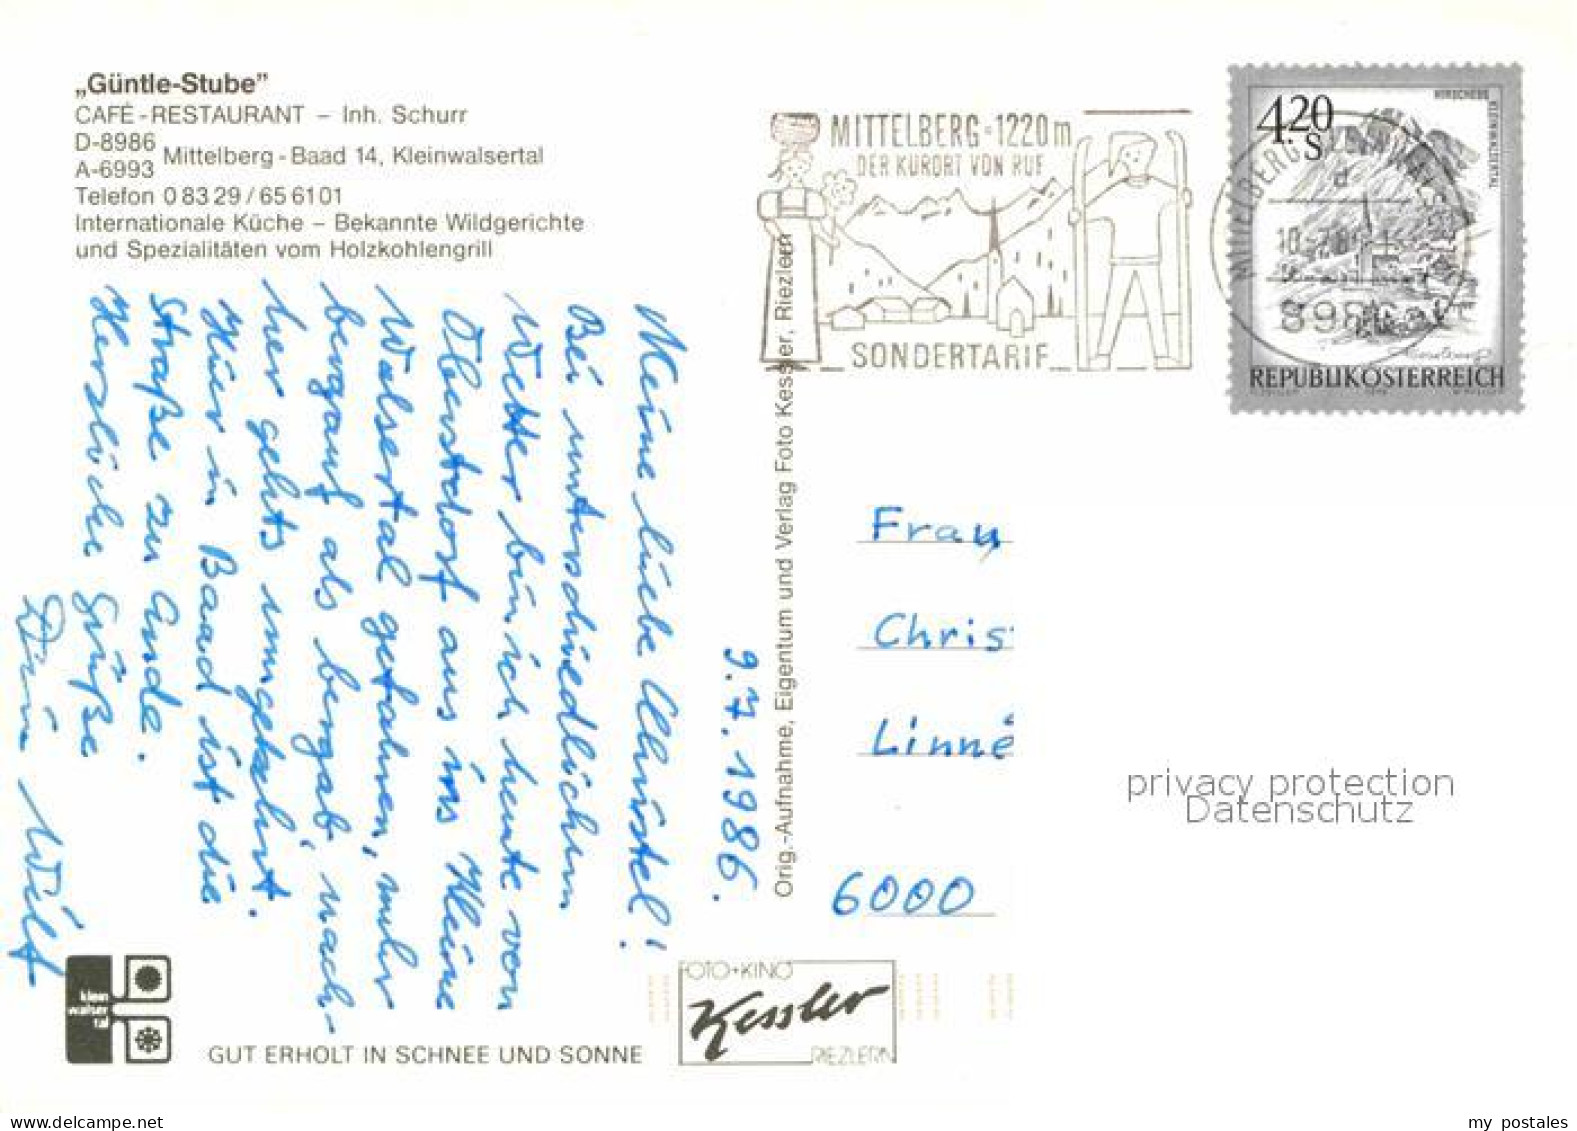 „Güntle-Stube”
CAFÉ - RESTAURANT – Inh. Schurr
D-8986
A-6993 Mittelberg - Baad 14, Kleinwalsertal
Telefon 0 83 29 / 65 61 01
Internationale Küche – Bekannte Wildgerichte
und Spezialitäten vom Holzkohlengrill
9.7.1986.
Meine liebe Christel!
Bei unterschiedlichem
Wetter bin ich heute von
Oberstdorf aus ins Kleine
Walsertal gefahren, mehr
bergauf als bergab, nach-
her gehts umgekehrt.
Hier in Baad ist die
Straße zu Ende.
Herzliche Grüße
GUT ERHOLT IN SCHNEE UND SONNE
Orig.-Aufnahme, Eigentum und Verlag Foto Kessler, Riezlern
FOTO+KINO
Kessler
RIEZLERN
MITTELBERG-1220m
DER KURORT VON RUF
SONDERTARIF
MITTELBERG, KLEINWALSERTAL
d
8986
4.20
S
HIRSCHEGG
KLEINWALSERTAL
REPUBLIK ÖSTERREICH
Frau
Chris
Linné
6000
privacy protection
Datenschutz
my postales